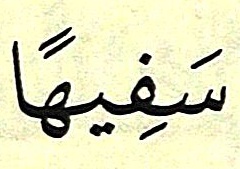 سَفِيهًا